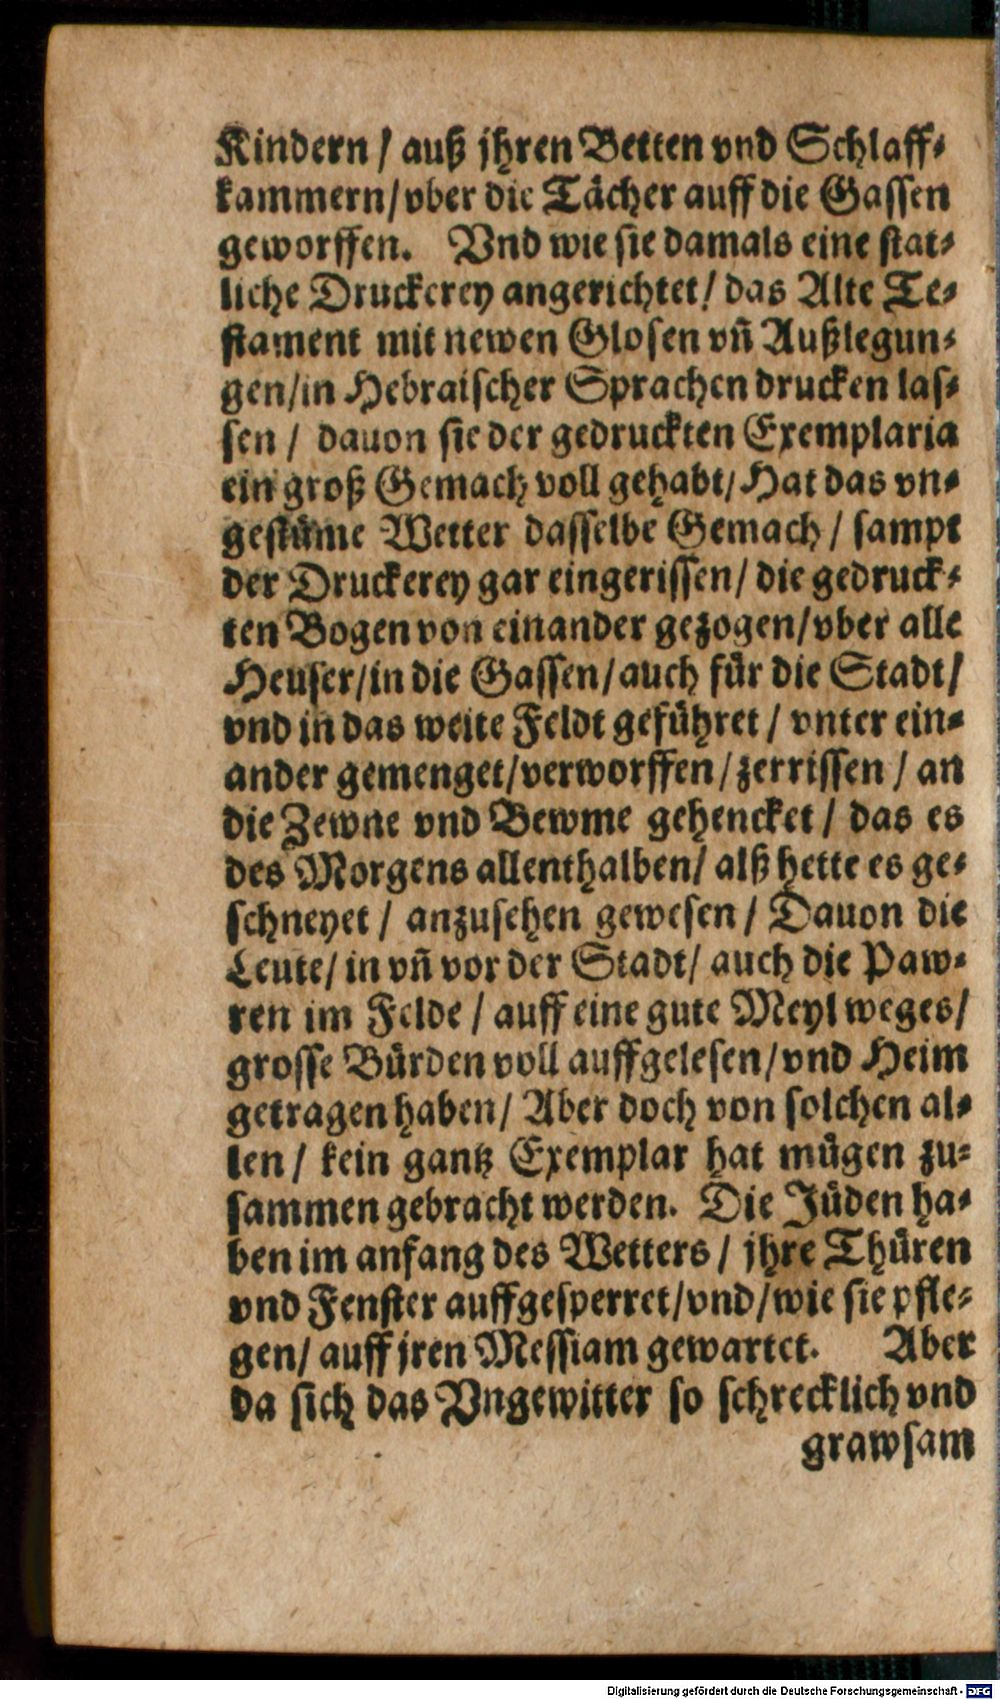 Kindern / auß jhren Betten vnd Schlaff⸗
kammern/vber die Tächer auff die Gassen
geworffen. Vnd wie sie damals eine stat⸗
liche Druckerey angerichtet / das Alte Te⸗
stament mit newen Glosen vñ Außlegun⸗
gen/in Hebraischer Sprachen drucken las⸗
sen / dauon sie der gedruckten Exemplaria
ein groß Gemach voll gehabt/ Hat das vn⸗
gestüme Wetter dasselbe Gemach / sampt
der Druckerey gar eingerissen/ die gedruck⸗
ten Bogen von einander gezogen/vber alle
Heuser/in die Gassen/auch für die Stadt/
vnd in das weite Feldt geführet / vnter ein⸗
ander gemenget/verworffen/zerrissen / an
die Zewne vnd Bewme gehencket / das es
des Morgens allenthalben/ alß hette es ge⸗
schneyet / anzusehen gewesen / Dauon die
Leute/ in vñ vor der Stadt/ auch die Paw⸗
ren im Felde / auff eine gute Meyl weges/
grosse Bürden voll auffgelesen/vnd Heim
getragen haben/ Aber doch von solchen al⸗
len / kein gantz Exemplar hat mügen zu⸗
sammen gebracht werden. Die Jüden ha⸗
ben im anfang des Wetters / jhre Thüren
vnd Fenster auffgesperret/vnd/wie sie pfle⸗
gen/ auff jren Messiam gewartet. Aber
da sich das Vngewitter so schrecklich vnd
grawsam
Digitalisierung gefördert durch die Deutsche Forschungsgemeinschaft - DFG